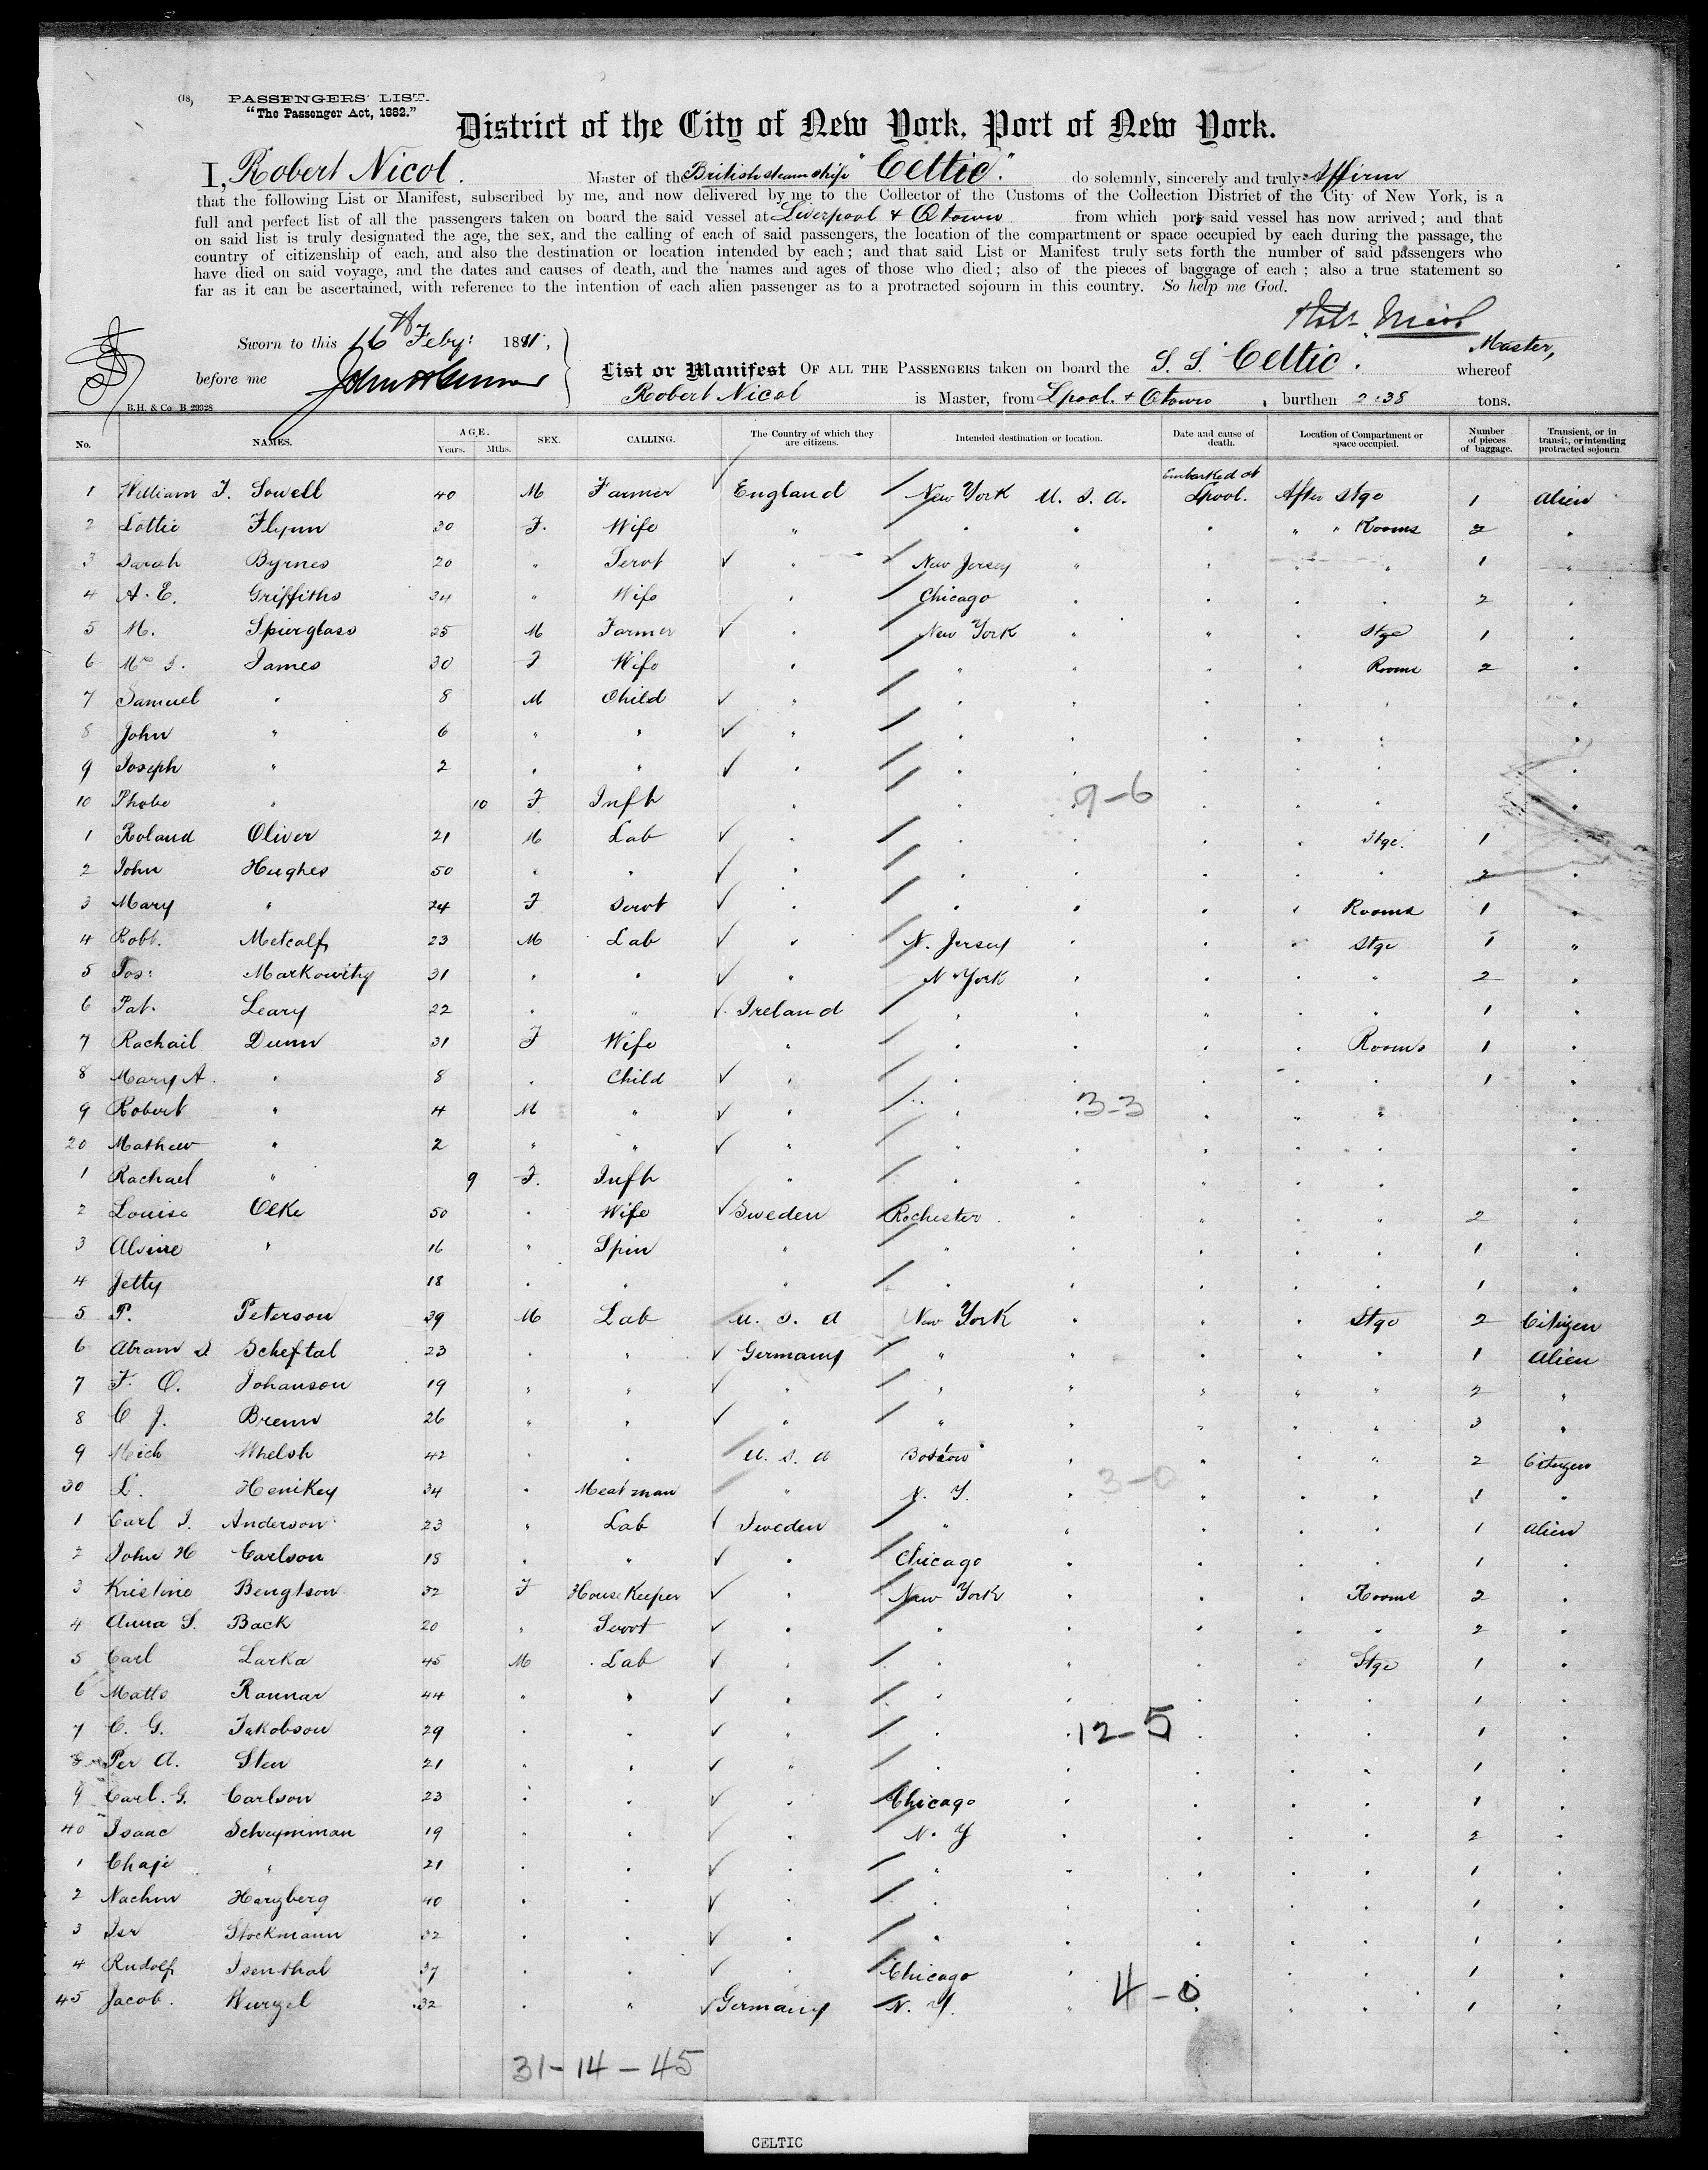 (18) PASSENGERS' LIST.
"The Passenger Act, 1882."
District of the City of New York, Port of New York.
I, Robert Nicol. Master of the British steam ship "Celtic". do solemnly, sincerely and truly Affirm
that the following List or Manifest, subscribed by me, and now delivered by me to the Collector of the Customs of the Collection District of the City of New York, is a
full and perfect list of all the passengers taken on board the said vessel at Liverpool & Qtown from which port said vessel has now arrived; and that
on said list is truly designated the age, the sex, and the calling of each of said passengers, the location of the compartment or space occupied by each during the passage, the
country of citizenship of each, and also the destination or location intended by each; and that said List or Manifest truly sets forth the number of said passengers who
have died on said voyage, and the dates and causes of death, and the names and ages of those who died; also of the pieces of baggage of each; also a true statement so
far as it can be ascertained, with reference to the intention of each alien passenger as to a protracted sojourn in this country. So help me God.
Robt Nicol
Sworn to this 16th Feby: 1891, Master,
before me List or Manifest OF ALL THE PASSENGERS taken on board the S. S. "Celtic". whereof
Robert Nicol is Master, from Lpool. & Qtown, burthen 2:38 tons.
B.H. & Co B 29328
No. NAMES. AGE. Years. Mths. SEX. CALLING. The Country of which they are citizens. Intended destination or location. Date and cause of death. Location of Compartment or space occupied. Number of pieces of baggage. Transient, or in transit, or intending protracted sojourn.
Embarked at
1 William J. Sowell 40 M Farmer England New York U. S. A. Lpool. After Stge 1 Alien
2 Lottie Flynn 30 F. Wife " " " " " " Rooms 2 "
3 Sarah Byrnes 20 " Servt " New Jersey " " " " 1 "
4 A. E. Griffiths 34 " Wife " Chicago " " " " 2 "
5 M. Spierglass 25 M Farmer " New York " " " Stge 1 "
6 Mrs S. James 30 F Wife " " " " " Rooms 2 "
7 Samuel " 8 M Child " " " " " " "
8 John " 6 " " " " " " " " "
9 Joseph " 2 " " " " " " " " "
10 Phobe " 10 F Inft " " 9-6 " " " "
1 Roland Oliver 21 M Lab " " " " " Stge. 1 "
2 John Hughes 50 " " " " " " " " 2 "
3 Mary " 24 F Servt " " " " " Rooms 1 "
4 Robt. Metcalf 23 M Lab " N. Jersey " " " Stge 1 "
5 Jos: Markowitz 31 " " " N York " " " " 2 "
6 Pat. Leary 22 " " Ireland " " " " " 1 "
7 Rachail Dunn 31 F Wife " " " " " Rooms 1 "
8 Mary A. " 8 " Child " " " " " " 1 "
9 Robert " 4 M " " " 3-3 " " " "
20 Mathew " 2 " " " " " " " " "
1 Rachael " 9 F. Inft " " " " " " "
2 Louise Oeke 50 " Wife Sweden Rochester " " " " 2 "
3 Alvine " 16 " Spin " " " " " " 1 "
4 Jetty 18 " " " " " " " " 1 "
5 P. Peterson 39 M Lab U. S. A New York " " " Stge 2 Citizen
6 Abram S. Scheftal 23 " " Germany " " " " " 1 Alien
7 F. O. Johanson 19 " " " " " " " " 2 "
8 C J. Breun 26 " " " " " " " " 3 "
9 Mich Whelsh 42 " " U. S. A Boston " " " " 2 Citizen
30 L. Henikey 34 " Meatman " N. Y. 3-0 " " " 1 "
1 Carl J. Anderson 23 " Lab Sweden " " " " " 1 Alien
2 John H Carlson 18 " " " Chicago " " " " 1 "
3 Kristine Bengtson 32 F House Keeper " New York " " " Rooms 2 "
4 Anna S. Back 20 " Servt " " " " " " 2 "
5 Carl Larka 45 M Lab " " " " " Stge 1 "
6 Matts Rannar 44 " " " " " " " " 1 "
7 C. G. Jakobson 29 " " " " 12-5 " " " 1 "
8 Per A. Sten 21 " " " " " " " " 1 "
9 Carl. G. Carlson 23 " " " Chicago " " " " 1 "
40 Isaac Scheynman 19 " " " N. Y " " " " 2 "
1 Chaje " 21 " " " " " " " " 1 "
2 Nachm Harzberg 40 " " " " " " " " 1 "
3 Isr Stockmann 32 " " " " " " " " 1 "
4 Rudolf Isenthal 37 " " " Chicago " " " " 1 "
45 Jacob. Wurzel 32 " " Germany N. Y. " 4-0 " " 1 "
31-14-45
CELTIC